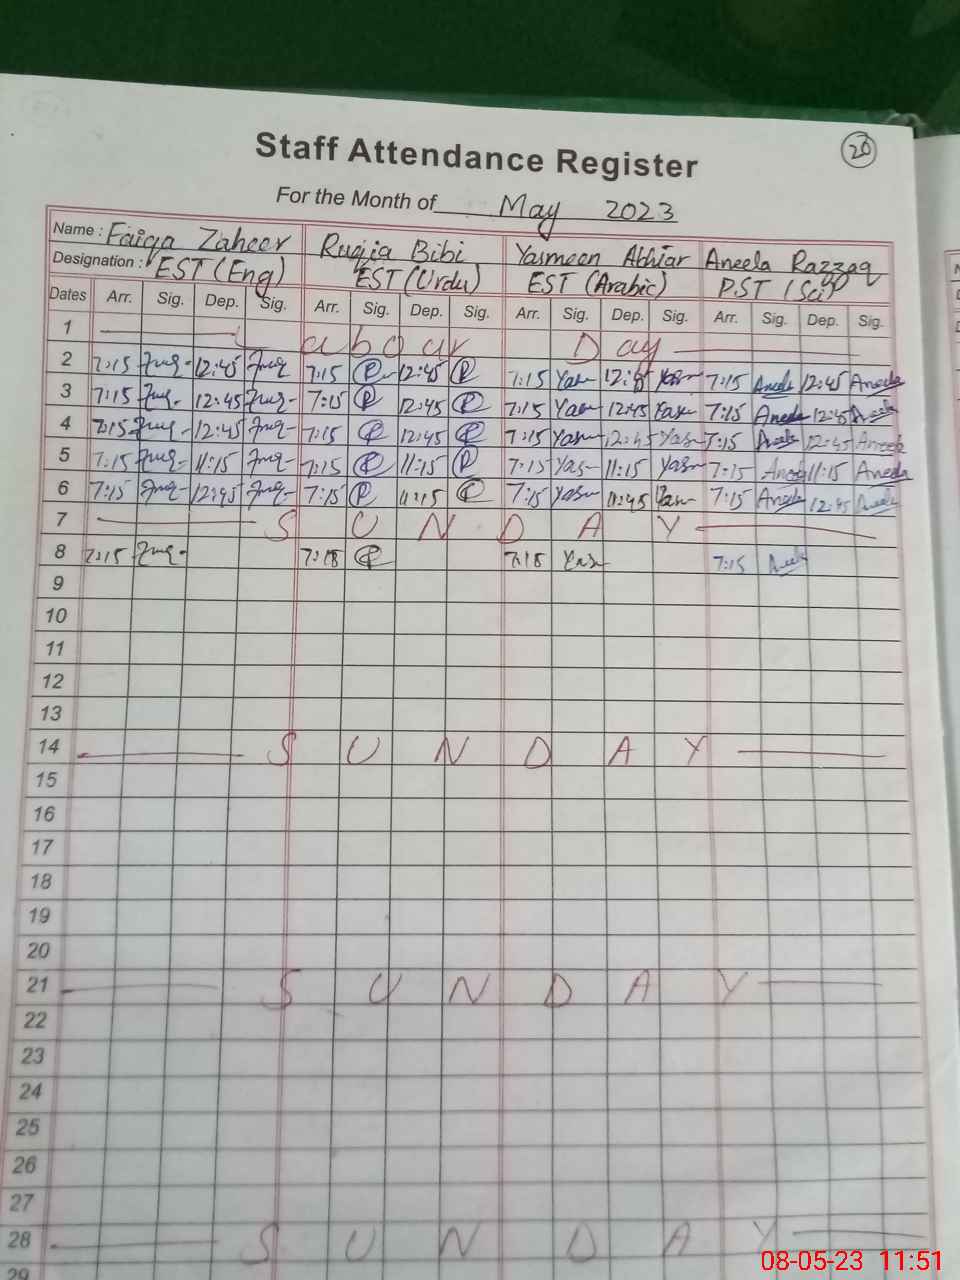 20
Staff Attendance Register
For the Month of May 2023
Name : Faiqa Zaheer Ruqia Bibi Yasmeen Akhtar Aneela Razzaq
Designation : EST (Eng) EST (Urdu) EST (Arabic) PST (Sci)
Dates Arr. Sig. Dep. Sig. Arr. Sig. Dep. Sig. Arr. Sig. Dep. Sig. Arr. Sig. Dep. Sig.
1 Labour Day
2 7:15 12:45 7:15 12:45 7:15 Yas 12:45 Yas 7:15 Aneela 12:45 Aneela
3 7:15 12:45 7:15 12:45 7:15 Yas 12:45 Yas 7:15 Aneela 12:45 Aneela
4 7:15 12:45 7:15 12:45 7:15 Yas 12:45 Yas 7:15 Aneela 12:45 Aneela
5 7:15 11:15 7:15 11:15 7:15 Yas 11:15 Yas 7:15 Aneela 11:15 Aneela
6 7:15 12:45 7:15 11:15 7:15 Yas 11:45 Yas 7:15 Aneela 12:45 Aneela
7 SUNDAY
8 7:15 7:18 7:18 Yas 7:15 Aneela
9
10
11
12
13
14 SUNDAY
15
16
17
18
19
20
21 SUNDAY
22
23
24
25
26
27
28 SUNDAY
29
08-05-23 11:51